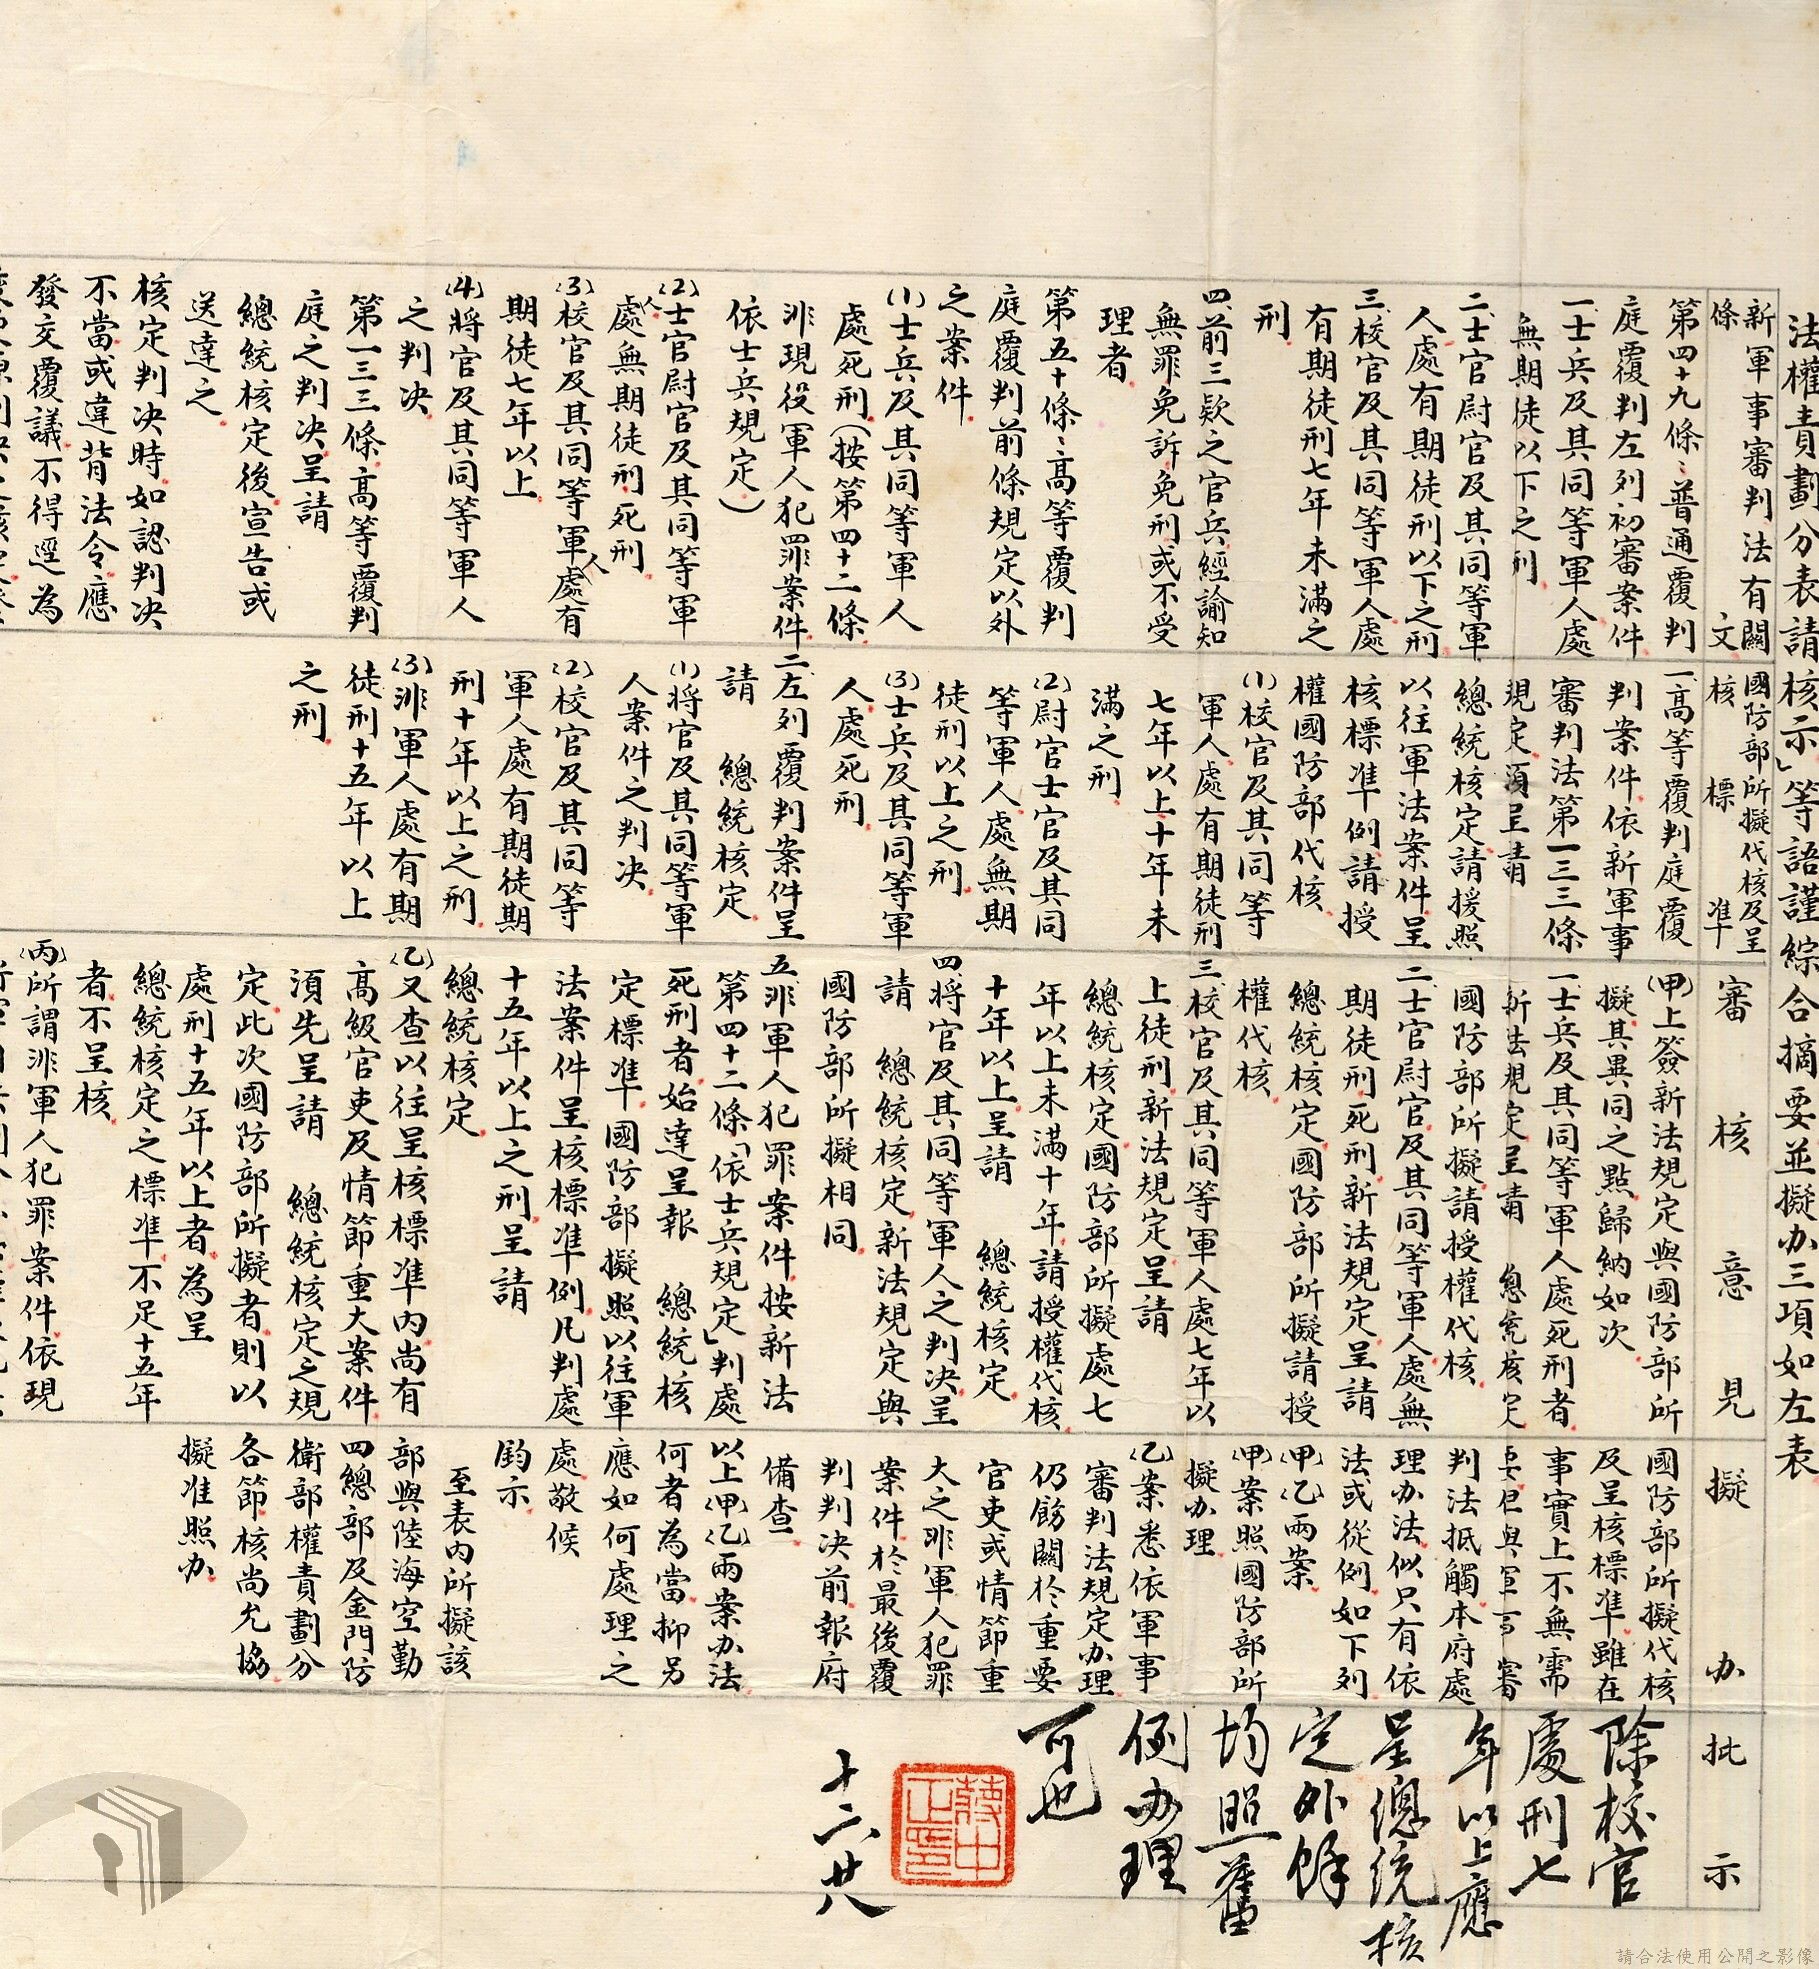 法權責劃分表請核示」等語謹綜合摘要並擬办三項如左表
新軍事審判法有關
條文
第四十九條:普通覆判
庭覆判左列初審案件
一士兵及其同等軍人處
無期徒以下之刑
二士官尉官及其同等軍
人處有期徒刑以下之刑
三校官及其同等軍人處
有期徒刑七年未滿之
刑
四前三款之官兵經諭知
無罪免訴免刑或不受
理者
第五十條:高等覆判
庭覆判前條規定以外
之案件
(1)士兵及其同等軍人
處死刑(按第四十二條
非現役軍人犯罪案件
依士兵規定)
(2)士官尉官及其同等軍
人處無期徒刑死刑
(3)校官及其同等軍人處有
期徒七年以上
(4)將官及其同等軍人
之判决
第一三三條高等覆判
庭之判决呈請
總統核定後宣告或
送達之
核定判决時如認判决
不當或違背法令應
發交覆議不得逕為
國防部所擬代核及呈
核標準
一高等覆判庭覆
判案件依新軍事
審判法第一三三條
規定須呈請
總統核定請援照
以往軍法案件呈
核標準例請授
權國防部代核
(1)校官及其同等
軍人處有期徒刑
七年以上十年未
滿之刑
(2)尉官士官及其同
等軍人處無期
徒刑以上之刑
(3)士兵及其同等軍
人處死刑
二左列覆判案件呈
請 總統核定
(1)將官及其同等軍
人案件之判决
(2)校官及其同等
軍人處有期徒期
刑十年以上之刑
(3)非軍人處有期
徒刑十五年以上
之刑
審核意見
(甲)上簽新法規定與國防部所
擬其異同之點歸納如次
一士兵及其同等軍人處死刑者
新法規定呈請 總統核定
國防部所擬請授權代核
二士官尉官及其同等軍人處無
期徒刑死刑新法規定呈請
總統核定國防部所擬請授
權代核
三校官及其同等軍人處七年以
上徒刑新法規定呈請
總統核定國防部所擬處七
年以上未滿十年請授權代核
十年以上呈請 總統核定
四將官及其同等軍人之判决呈
請 總統核定新法規定與
國防部所擬相同
五非軍人犯罪案件按新法
第四十二條「依士兵規定」判處
死刑者始達呈報 總統核
定標準國防部擬照以往軍
法案件呈核標準例凡判處
十五年以上之刑呈請
總統核定
(乙)又查以往呈核標準內尚有
高級官吏及情節重大案件
須先呈請 總統核定之規
定此次國防部所擬者則以
處刑十五年以上者為呈
總統核定之標準不足十五年
者不呈核
(丙)所謂非軍人犯罪案件依現
擬办
國防部所擬代核
及呈核標準雖在
事實上不無需
要但與軍事審
判法抵觸本府處
理办法似只有依
法或從例如下列
(甲)(乙)兩案
(甲)案照國防部所
擬办理
(乙)案悉依軍事
審判法規定办理
仍飭關於重要
官吏或情節重
大之非軍人犯罪
案件於最後覆
判判决前報府
備查
以上(甲)(乙)兩案办法
何者為當抑另
應如何處理之
處敬候
鈞示
至表內所擬該
部與陸海空勤
四總部及金門防
衛部權責劃分
各節核尚允協
擬准照办
批示
除校官
處刑七
年以上應
呈總統核
定外餘
均照舊
例办理
可也
蔣中正印
十二、廿八
請合法使用公開之影像